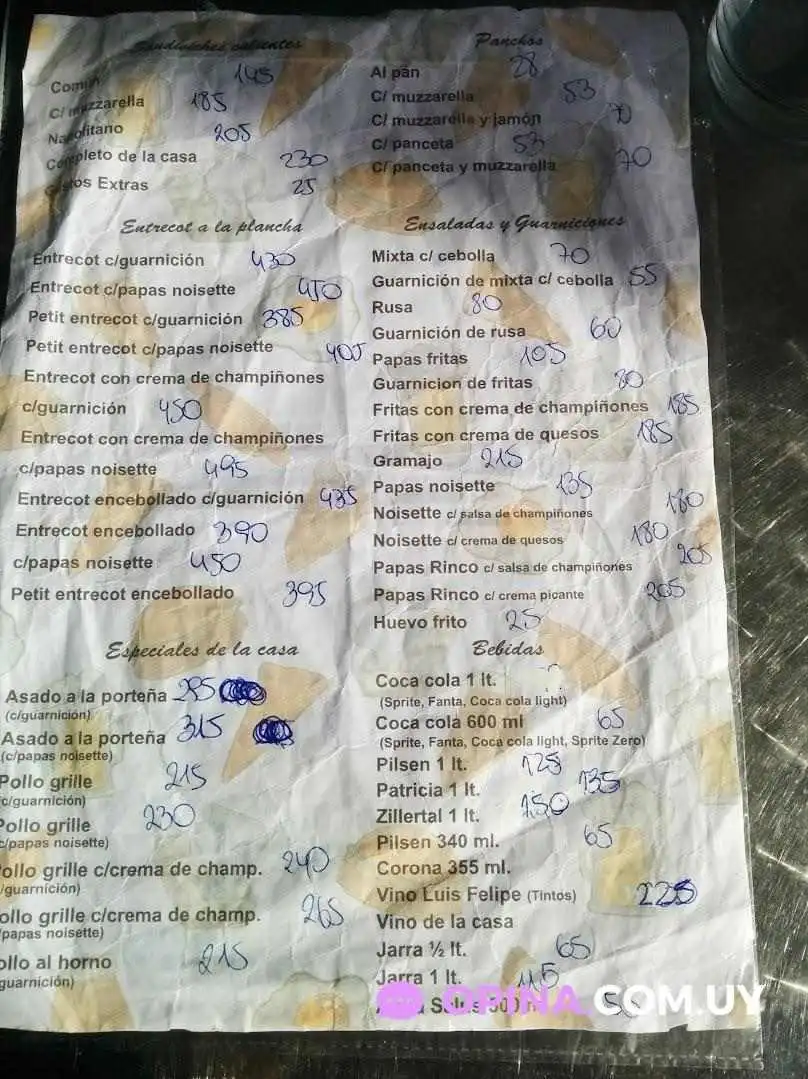 Sandwiches calientes
Común 145
C/ muzzarella 185
Napolitano 205
Completo de la casa 230
Extras 25
Entrecot a la plancha
Entrecot c/guarnición 430
Entrecot c/papas noisette 450
Petit entrecot c/guarnición 385
Petit entrecot c/papas noisette 405
Entrecot con crema de champiñones
c/guarnición 450
Entrecot con crema de champiñones
c/papas noisette 495
Entrecot encebollado c/guarnición 435
Entrecot encebollado 390
c/papas noisette 450
Petit entrecot encebollado 395
Especiales de la casa
Asado a la porteña 285
(c/guarnición)
Asado a la porteña 315
(c/papas noisette)
Pollo grille 215
c/guarnición)
Pollo grille 230
c/papas noisette)
ollo grille c/crema de champ. 240
/guarnición)
ollo grille c/crema de champ. 265
/papas noisette)
ollo al horno 215
guarnición)
Panchos
Al pan 28
C/ muzzarella 53
C/ muzzarella y jamón 70
C/ panceta 53
C/ panceta y muzzarella 70
Ensaladas y Guarniciones
Mixta c/ cebolla 70
Guarnición de mixta c/ cebolla 55
Rusa 80
Guarnición de rusa 60
Papas fritas 105
Guarnicion de fritas 80
Fritas con crema de champiñones 185
Fritas con crema de quesos 185
Gramajo 215
Papas noisette 135
Noisette c/ salsa de champiñones 180
Noisette c/ crema de quesos 180
Papas Rinco c/ salsa de champiñones 205
Papas Rinco c/ crema picante 205
Huevo frito 25
Bebidas
Coca cola 1 lt.
(Sprite, Fanta, Coca cola light)
Coca cola 600 ml 65
(Sprite, Fanta, Coca cola light, Sprite Zero)
Pilsen 1 lt. 125
Patricia 1 lt. 135
Zillertal 1 lt. 150
Pilsen 340 ml. 65
Corona 355 ml.
Vino Luis Felipe (Tintos) 225
Vino de la casa
Jarra ½ lt. 65
Jarra 1 lt. 115
OPINA.COM.UY